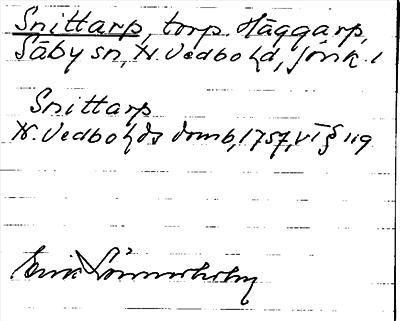 Snittarp, torp. Häggarp,
Säby sn, N. Vedbo hd, Jönk. l
Snittarp
N. Vedbo hds domb, 1757, VI § 119
Erik